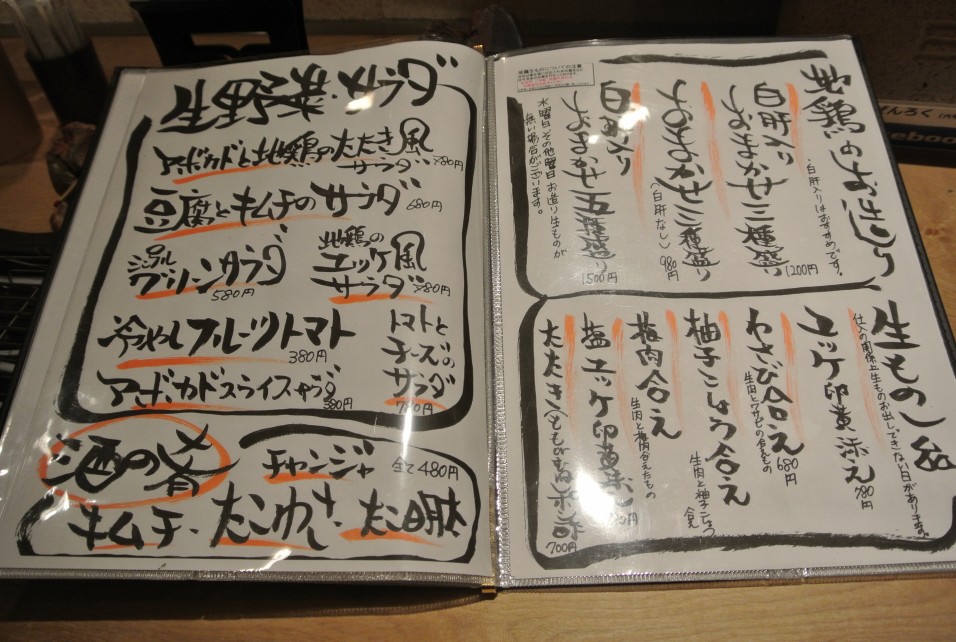 生野菜・サラダ
アボカドと地鶏のたたき風サラダ 780円
豆腐とキムチのサラダ 680円
シンプルグリーンサラダ 580円
地鶏のユッケ風サラダ 780円
冷やしフルーツトマト 380円
トマトとチーズのサラダ 780円
アボカドスライスサラダ 380円
酒の肴
チャンジャ 全て480円
キムチ・たこわさ・たこ
地鶏のお造り
・白肝入りはおすすめです。
白肝入り
おまかせ三種盛り 1200円
おまかせ三種盛り 980円
(白肝なし)
白肝入り
おまかせ五種盛り 1500円
水曜日、その他曜日お造り生ものが
無い場合がございます。
生もの
仕入の関係上生ものお出しできない日があります。
ユッケ卵黄添え 780円
わさび合え 680円
生肉とワサビの合えもの
柚子こしょう合え
生肉と柚子こしょう合え
梅肉合え
生肉と梅肉合えたもの
塩ユッケ卵黄添え
たたき(ももorむねポン酢 700円